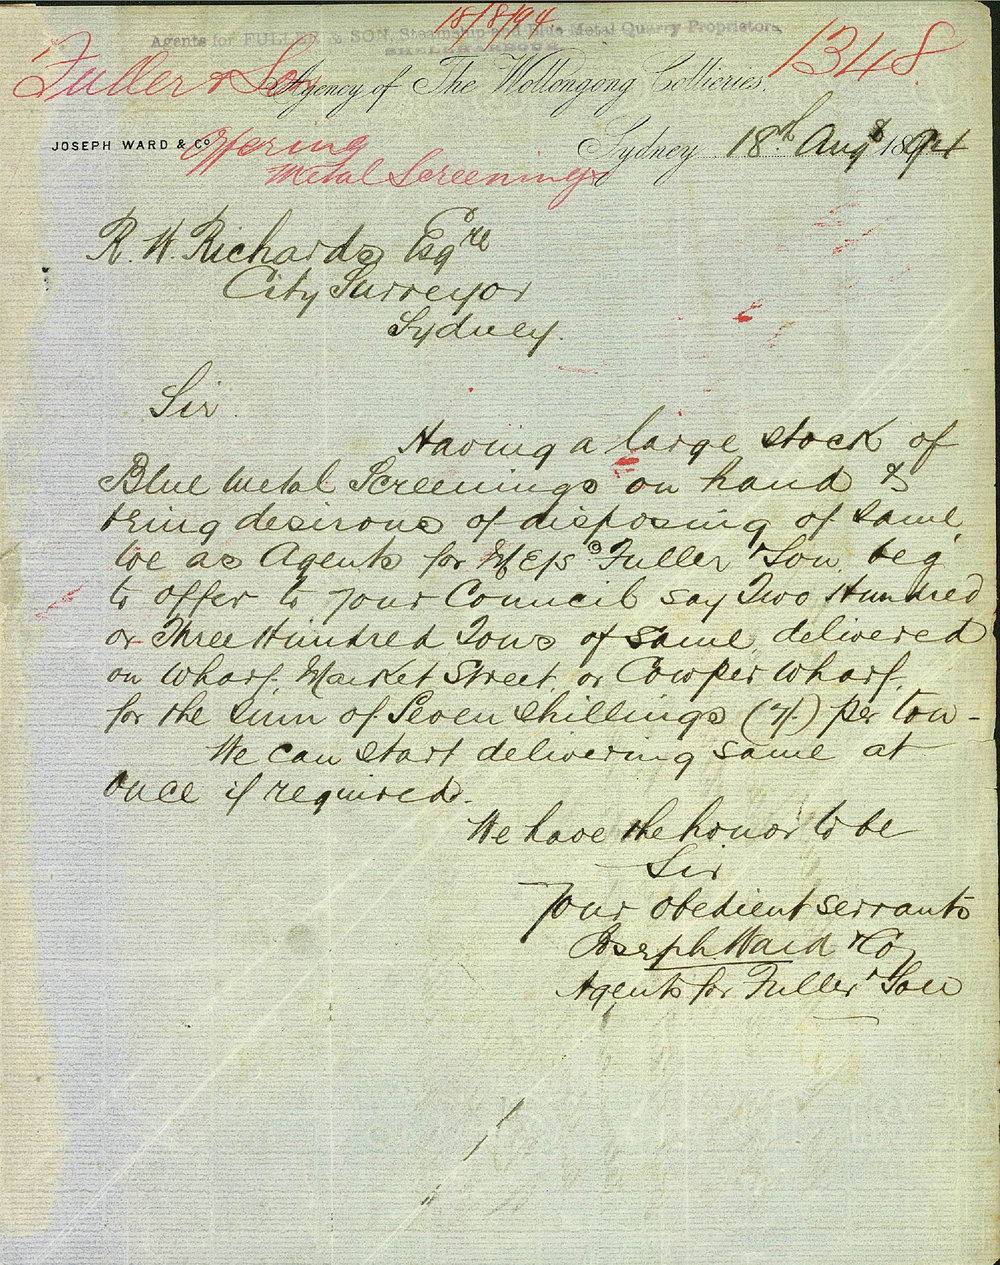 18/8/94
Agents for FULLER & SON, Steamship and Blue Metal Quarry Proprietors,
SHELLHARBOUR
1348
Fuller & Son
Agency of The Wollongong Collieries.
JOSEPH WARD & Co
Offering
Metal Screenings
Sydney 18th Augt 1894
R. W. Richards Esqre
City Surveyor
Sydney.
Sir.
Having a large stock of
Blue Metal Screenings on hand &
being desirous of disposing of same,
we as Agents for Messrs Fuller & Son, beg
to offer to your Council say Two Hundred
or Three Hundred Tons of same, delivered
on Wharf, Market Street, or Cowper Wharf,
for the sum of Seven Shillings (7/-) per ton -
We can start delivering same at
once if required.
We have the honor to be
Sir
Your obedient servants
Joseph Ward & Co
Agents for Fuller & Son